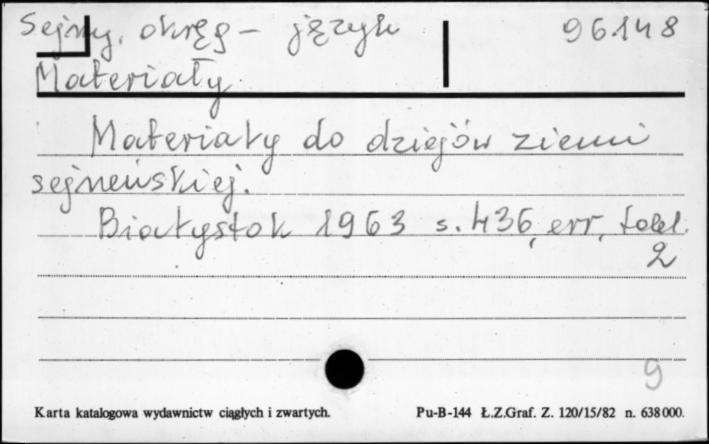 Sejny, okręg - język 96148
Materiały
Materiały do dziejów ziemi
sejneńskiej.
Białystok 1963 s. 436, err, tabl.
2
9
Karta katalogowa wydawnictw ciągłych i zwartych. Pu-B-144 Ł.Z.Graf. Z. 120/15/82 n. 638000.